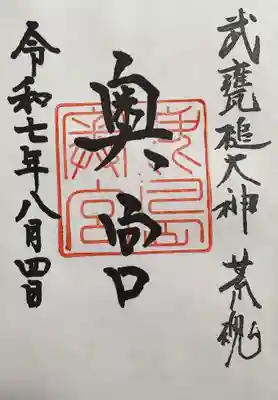 武甕槌大神 荒魂
奥宮
鹿島奥宮
令和七年八月四日